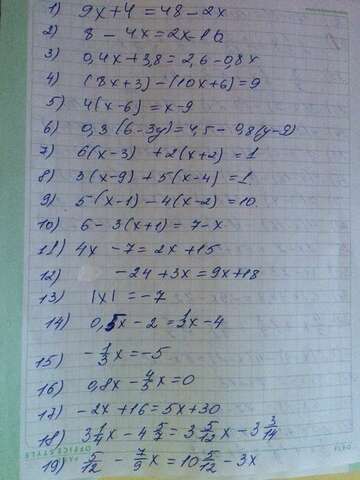 1) 9x+4 = 48 - 2x
2) 8 - 4x = 2x - 16
3) 0,4x + 3,8 = 2,6 - 0,8x
4) (8x+3) - (10x+6) = 9
5) 4(x-6) = x-9
6) 0,3(6-3y) = 4,5 - 0,8(y-9)
7) 6(x-3) + 2(x+2) = 1
8) 3(x-9) + 5(x-4) = 1
9) 5(x-1) - 4(x-2) = 10
10) 6 - 3(x+1) = 7-x
11) 4x - 7 = 2x + 15
12) -24 + 3x = 9x + 18
13) |x| = -7
14) 0,5x - 2 = 1/3x - 4
15) -1/3x = -5
16) 0,8x - 4/5x = 0
17) -2x + 16 = 5x + 30
18) 3 1/4x - 4 5/7 = 3 5/12x - 3 3/14
19) 5/12 - 7/9x = 10 5/12 - 3x
OFFICE STYLE